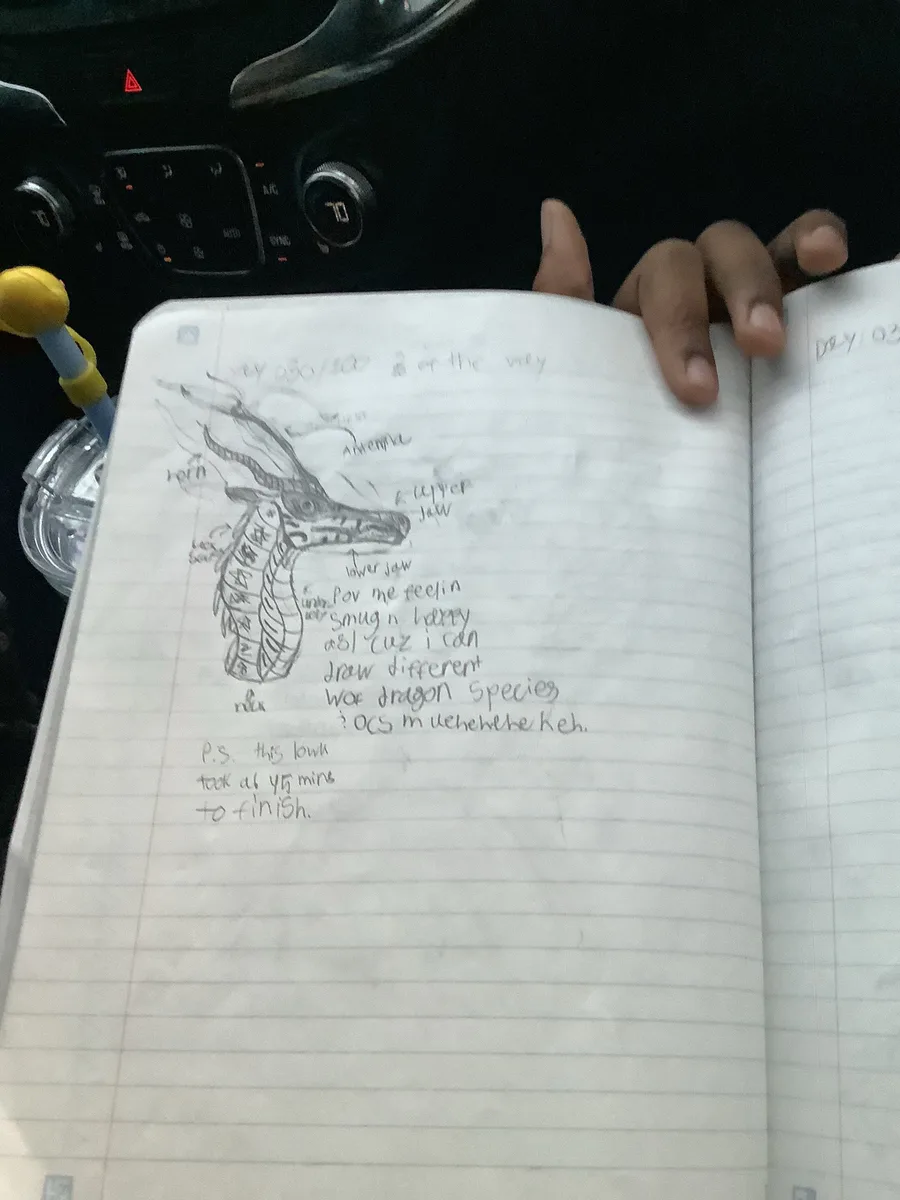 70
A/C
SYNC
DAY: 03
030/300 of the way
Antenna
horn
upper
jaw
lower jaw
neck
Pov me feelin
smug n happy
asl cuz i can
draw different
WOF dragon species
: OCS muehehehe heh.
P.S. this lowk
took at 45 mins
to finish.